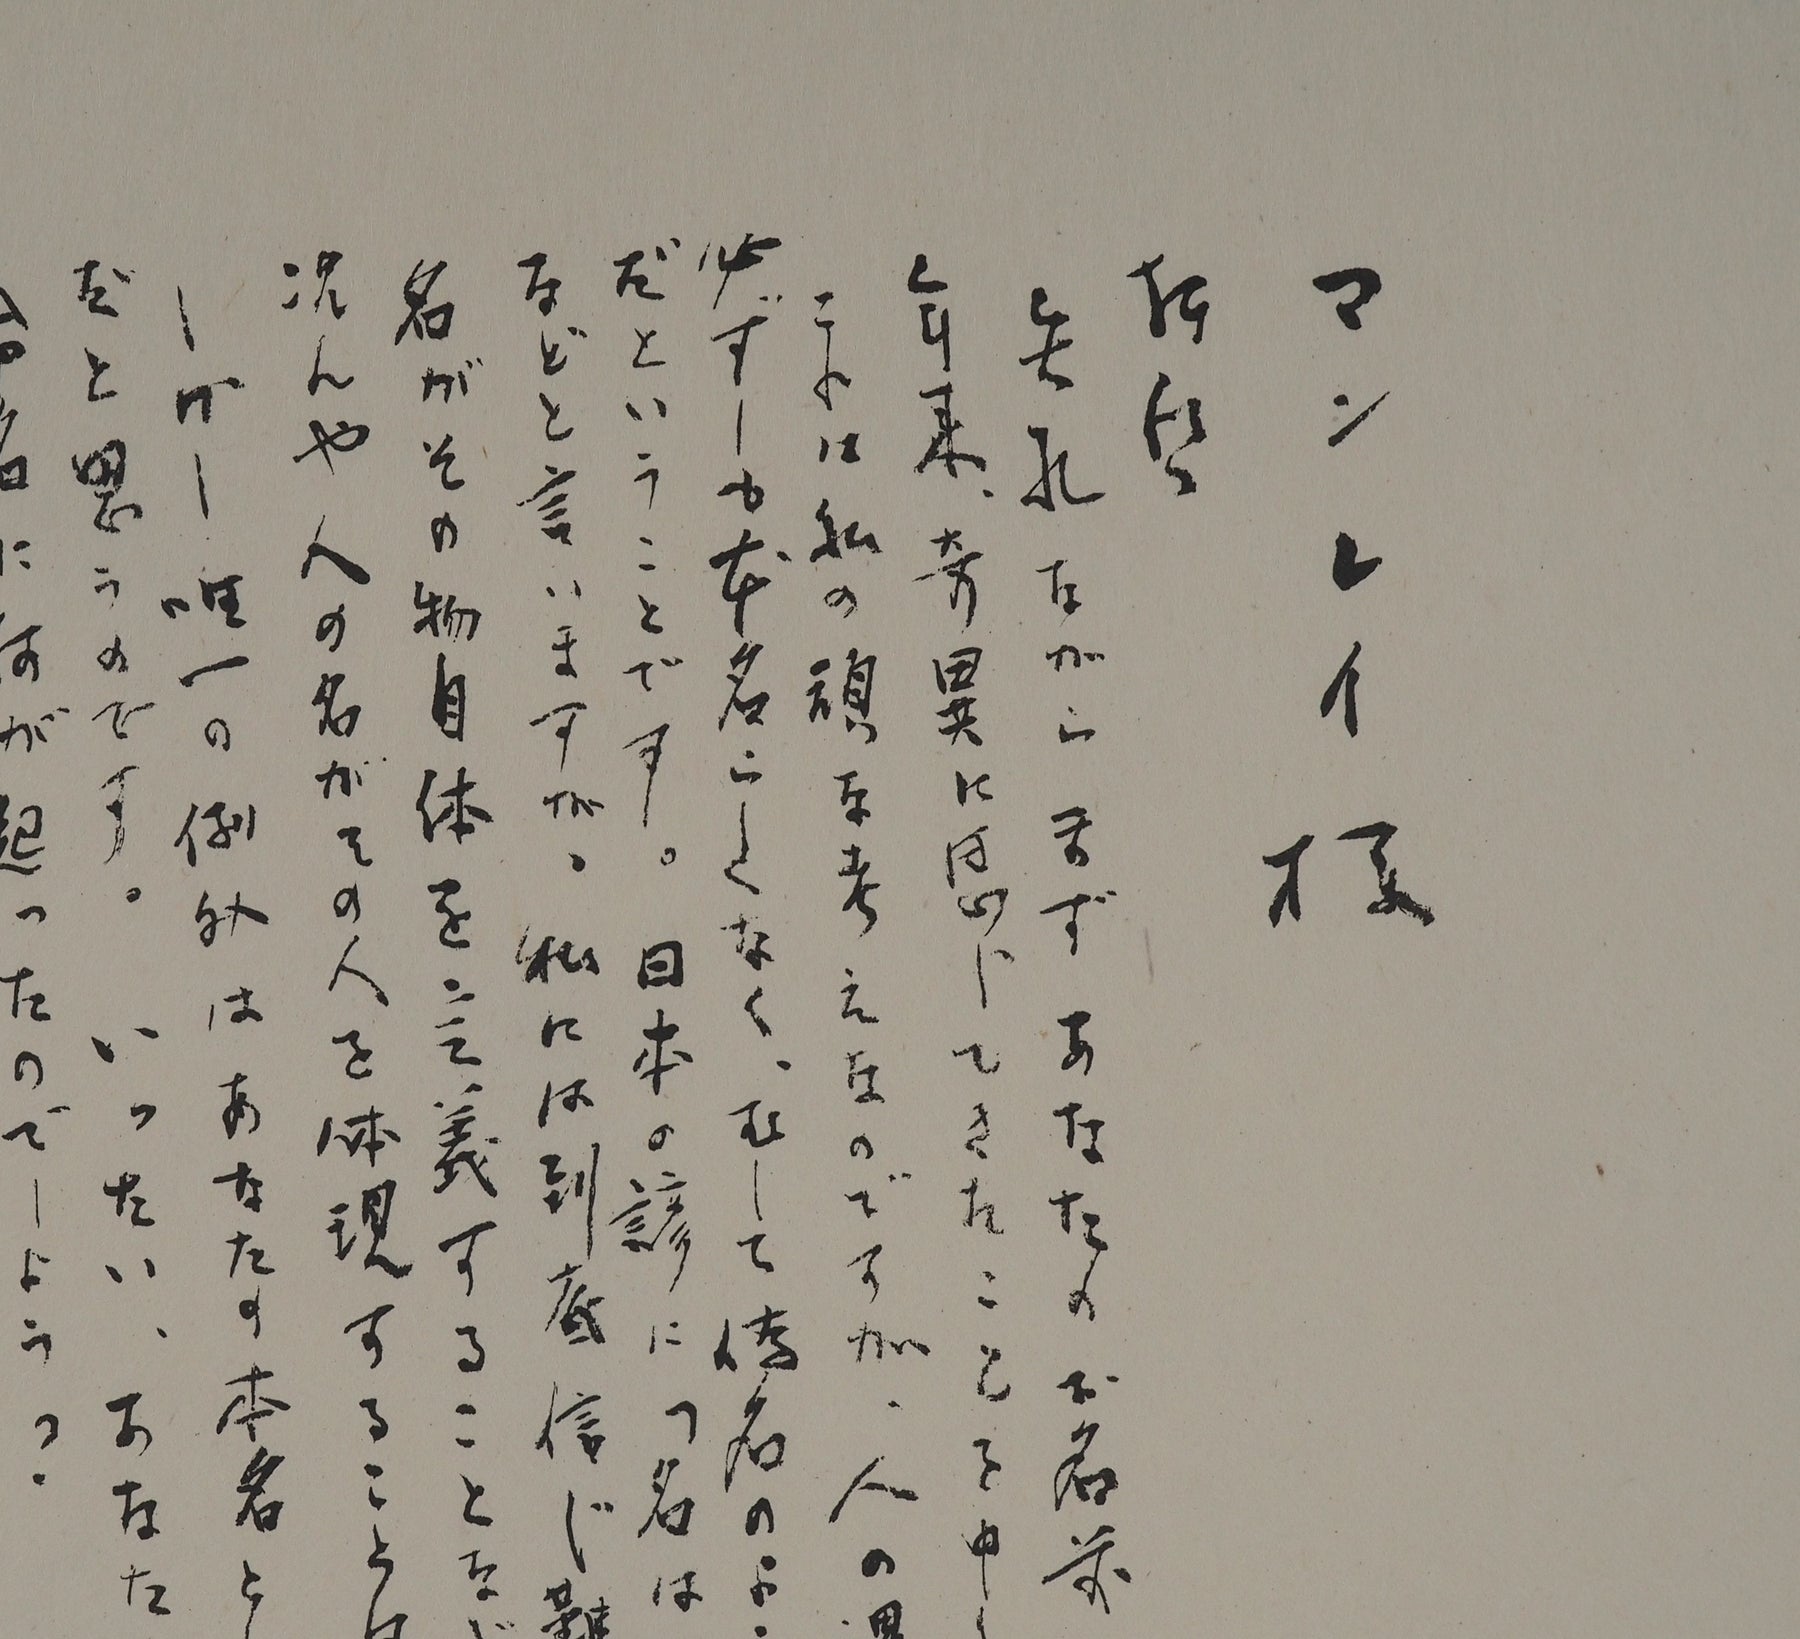 マンレイ様
拝啓
失礼ながらまずあなたのお名前
年来、奇異に感じてきたことを申し
これは私の頑な考えなのですが、人の
必ずしも本名らしくなく、むしろ偽名のよう
だということです。日本の諺に「名は
などと言いますが、私には到底信じ難
名がその物自体を定義することなど
況んや人の名がその人を体現することは
しかし唯一の例外はあなたの本名と
だと思うのです。いったい、あなた
名に何が起ったのでしょうか